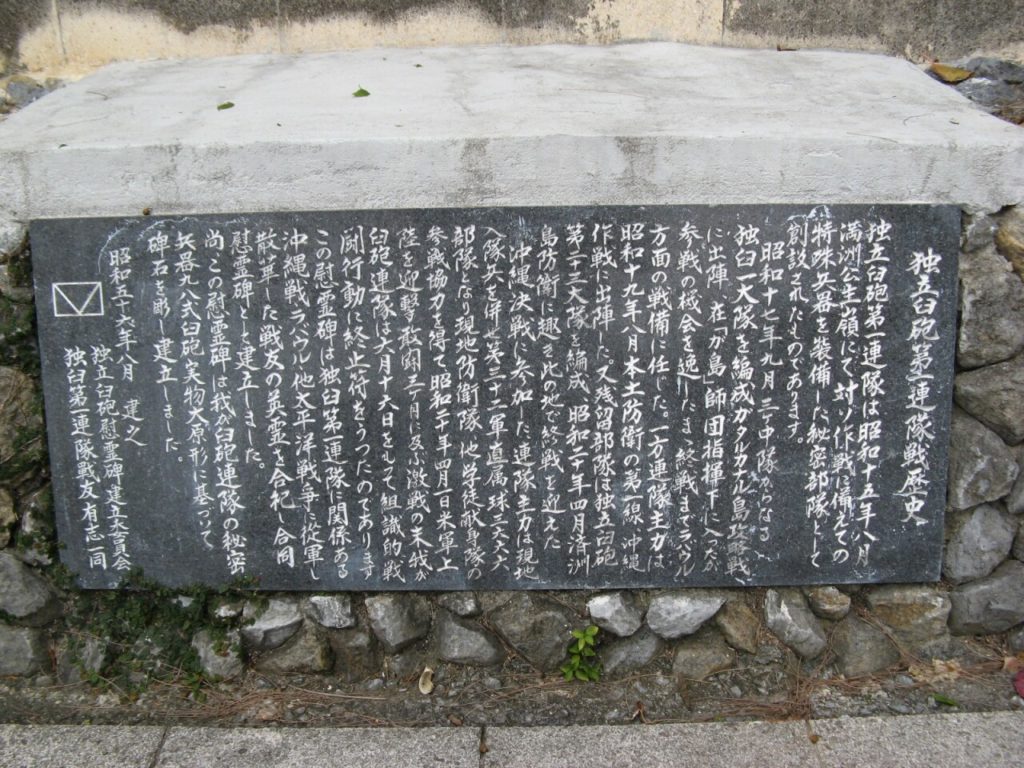 独立臼砲第一連隊戦歴史
独立臼砲第一連隊は昭和十五年八月
満洲公主嶺にて対ソ作戦に備えての
特殊兵器を装備した秘密部隊として
創設されたものであります。
昭和十七年九月 三ヶ中隊からなる
独臼一大隊を編成ガタルカナル島攻略戦
に出陣 在「が島」師団指揮下に入ったが
参戦の機会を逸したまゝ終戦までラバウル
方面の戦備に任じた。一方連隊主力は
昭和十九年八月本土防衛の第一線 沖縄
作戦に出陣した又残留部隊は独立臼砲
第二三大隊を編成、昭和二十年四月済洲
島防衛に趣き此の地で終戦を迎えた
沖縄決戦に参加した連隊主力は現地
入隊兵を併せ第三十二軍直属球三六六六
部隊となり現地防衛隊、他学徒献身隊の
参戦協力を得て昭和二十年四月一日米軍上
陸を迎撃敢闘三ヶ月に及ぶ激戦の末我が
臼砲連隊は六月十六日をもって組識的戦
闘行動に終止符をうったのであります
この慰霊碑は独臼第一連隊に関係ある
沖縄戦ラバウル、他太平洋戦争に従軍し
散華した戦友の英霊を合祀し合同
慰霊碑として建立しました。
尚この慰霊碑は我が臼砲連隊の秘密
兵器九八式臼砲実物大原形に基づいて
碑石を彫し建立しました。
昭和五十六年八月 建之
独立臼砲慰霊碑建立委員会
独臼第一連隊戦友有志一同